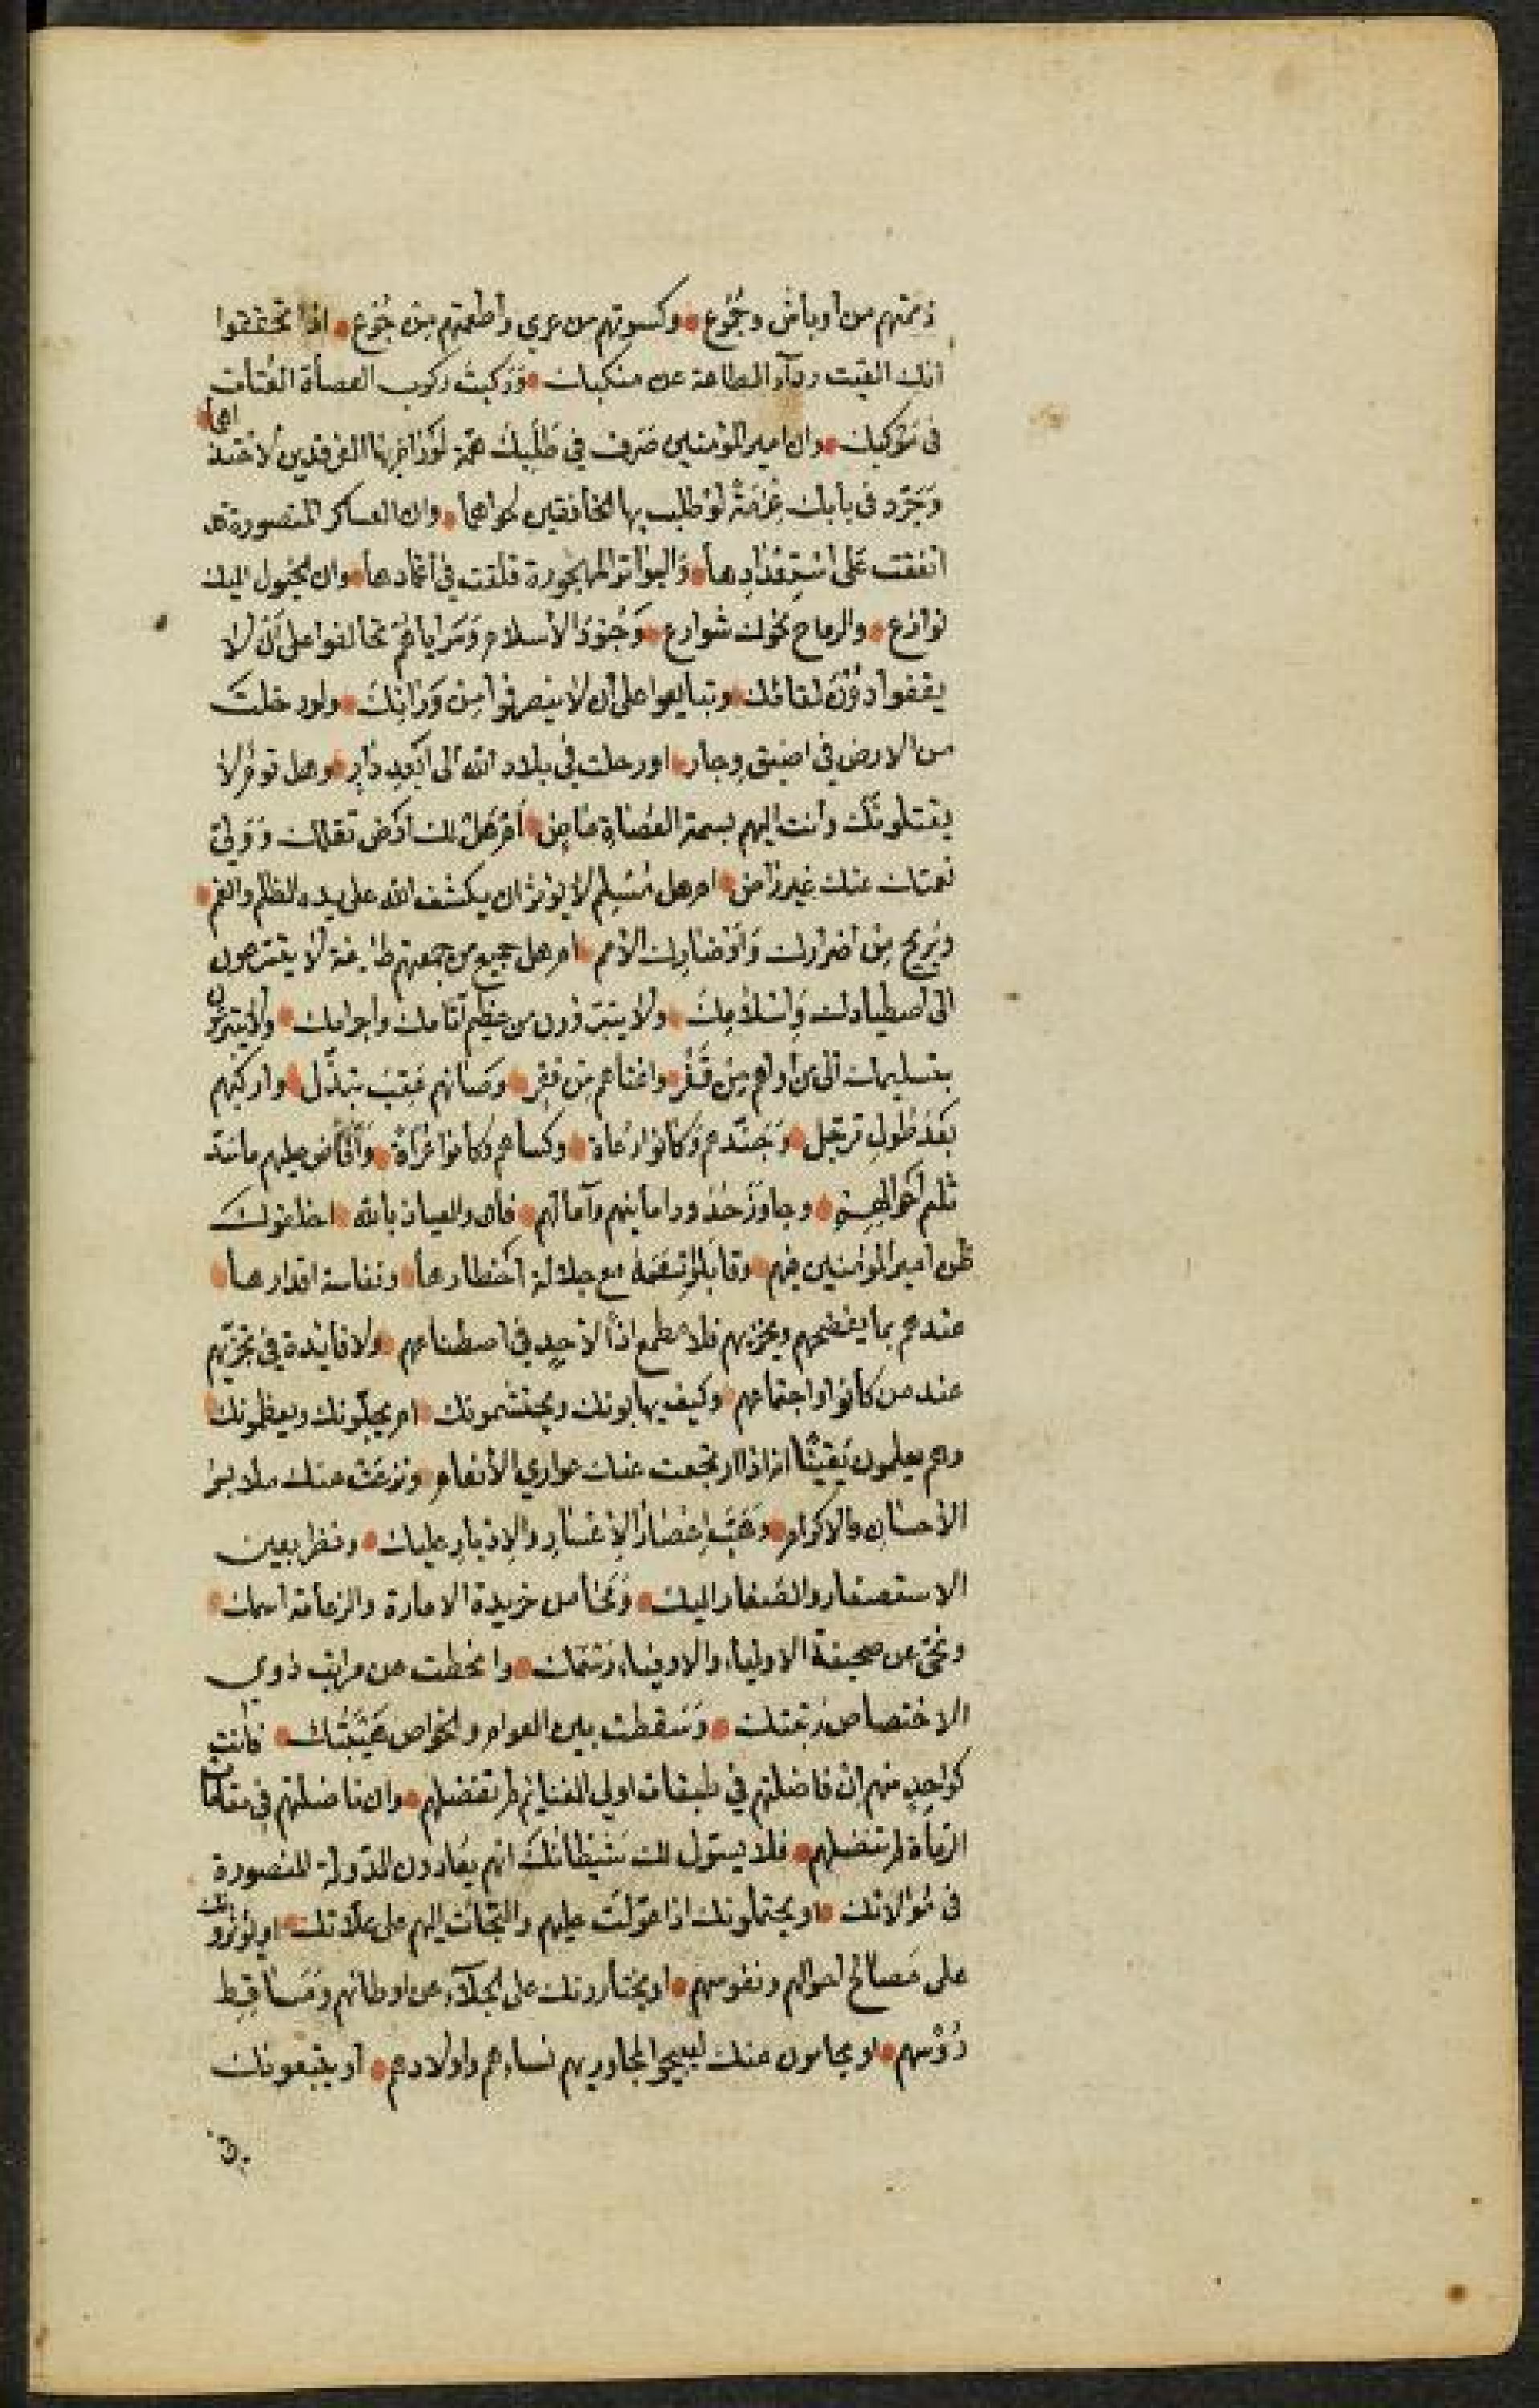 ذممتهم من اوباش وجُمُوع وكسوتهم من عري واطعمتهم مِن جُوع اذا تحققوا
انك القيت ردآء الطاعة عن منكبيك وَرَكبتَ ركوب العصاة العُتاة
في مَوْكبك وان امير المؤمنين صَرف في طَلَبِكَ همّة لَوْ رَام بها الفرقدين لأخذ اهما
وَجَرّد في بابك عَزمَةً لوْ طلب بها الخافقين لحواهما وان العساكر المنصورة قد
اتفقت عَلى اسْتِعْدَادِهَا وَالبواتر المهجورة قلقت في أغمادها وان الخيول اليك
نوازع والرماح نحوك شوارع وَجُنودَ الأسلام وَسَراياهُم تحالفوا على أَنْ لا
يقفوا دُوْنَ لقائك وتبايعوا على ان لا ينصرفوا مِن وَرَائِكَ ولو دخلتَ
من الارض في اضيق وجار او رحلت في بلاد الله الى ابْعدِ دَارٍ وهل قوم لا
يقتلونَكَ وانت اليهم بسمة العُصَاةِ أم هَلْ لك ارض تقلك وَوَليّ
نعمتك عنك غير رَاض ام هل مُسْلِم لا يؤثر ان يكشف الله على يده الظلم والغم
وَيُريح مِن اضرارك وَاَوْضَارِك الأمم ام هل جميع من جمعتهم طايفة لا يتسرعون
الى اصطيادك وَاسْلَامِكَ ولا يتبرّؤون من عظيم آثامك واجرامك
بتسليمك الى من اواهم مِن قَفْر واغناهم مِن فقرٍ وصَانهم عَقِبَ تبذّل واركبهم
بَعْدَ طُولِ ترجّل وَجَنّدهم وَكانوا رعَاة وكساهم وكانوا عُرَاةً وَأفَاض عليهم ماسَدّ
ثلم احوالهم وجاوَزَ حُدُود امانيهم وآمالهم فان والعياذ بالله اخلفوكَ
ظن امير المؤمنين فيهم وقابلوْا نِعَمَهُ مع جلالة اخطارها ونفاسة اقدارها
عندهم بما يفضحهم ويخزيهم فلا مطمع اذًا لاحدٍ في اصطناعهم ولا فايدة في تحزّبهم
عند من كانوا واجتماعهم وكيف يهابونك ويحتشمونك ام يجلّونك ويعظمونك
وهم يعلمون يَقيناً انه اذا ارتجعت عنك عواري الأنعام ونزعَتْ عنك ملابس
الأحسان والاكرام وَهَبَّ إعْصَارُ الإعْسَارِ والإدْبارِ عليك ونظر بعين
الاستصغار والصَغار اليك وَمُحَا من جريدة الامارة والزعامة اسمك
ونُحيَ عن صحيفة الاوليا والاوفياء رَسْمُك وانحطت عن مراتب ذوي
الاختصاص رُتبتك وَسَقطت بين العوام والخواص هَيْبَتُكَ فانت
كواحِدٍ منهم ان فاضلتهم في طبقات اولي الغنا لم تفضلهم وان ناضلتهم في مقامات
الرّماة لم تنضلهم فلا يسوّل لك شَيْطانُكَ انهم يعَادون الدّولة المنصورة
في مُوَالاتك او يحتملونك اذا عوّلتَ عليهم والتجات اليهم على علّاتك او يؤثرونك
على مَصالح احوالهم ونفوسهم او يختارونك على الجلآء عن اوطانهم وَمَسَاقِط
رُؤسهم او يحامون عنك ليبيحوا لمحاربهم نساءهم واولادهم او يتبعونك